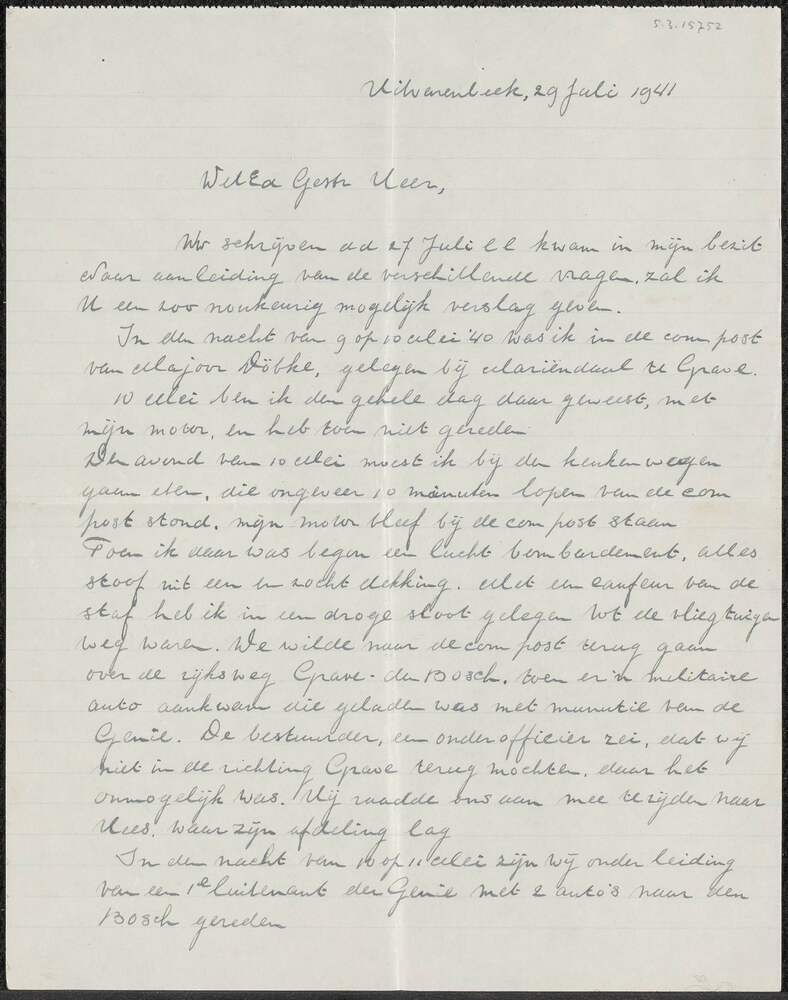 5.3.15752
Hilvarenbeek, 29 Juli 1941
WelEd Gestr Heer,
Uw schrijven dd 27 Juli ll kwam in mijn bezit
Naar aanleiding van de verschillende vragen, zal ik
U een zoo noukeurig mogelijk verslag geven.
In den nacht van 9 op 10 Mei '40 was ik in de com post
van Majoor Döbke, gelegen bij Mariëndaal te Grave.
10 Mei ben ik den geheele dag daar geweest, met
mijn motor, en heb toen niet gereden
Den avond van 10 Mei moest ik bij den keukenwagen
gaan eten, die ongeveer 10 minuten lopen van de com
post stond, mijn motor bleef bij de com post staan
Toen ik daar was begon een lucht bombardement, alles
stoof uit een en zocht dekking. Met een caufeur van de
staf heb ik in een droge sloot gelegen tot de vliegtuigen
weg waren. We wilde naar de com post terug gaan
over de rijksweg Grave - den Bosch, toen er 'n militaire
auto aankwam die geladen was met munutie van de
Genie. De bestuurder, een onderofficier zei, dat wij
niet in de richting Grave terug mochten, daar het
onmogelijk was. Hij raadde ons aan mee te rijden naar
Hees, waar zijn afdeling lag
In den nacht van 10 op 11 Mei zijn wij onder leiding
van een 1e luitenant der Genie met 2 auto's naar den
Bosch gereden